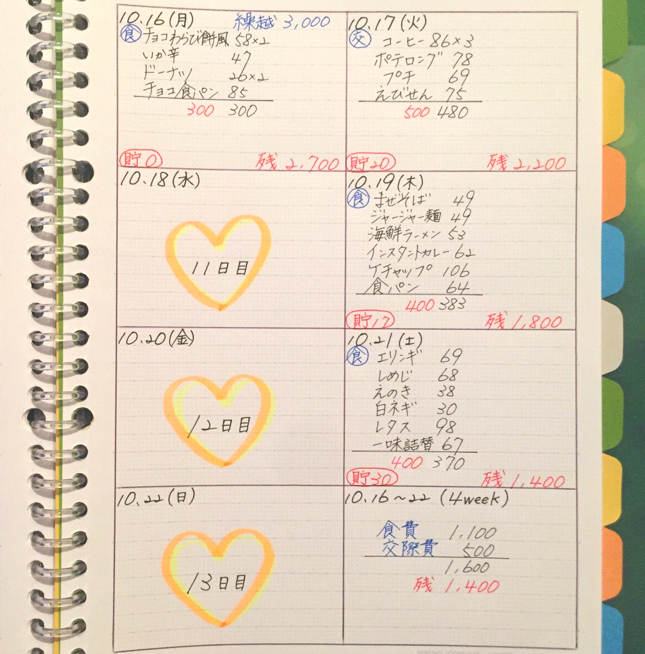 10.16(月) 繰越 3,000
食 チョコわらび餅風 58×2
いか辛 47
ドーナツ 26×2
チョコ食パン 85
300 300
貯0 残 2,700
10.17(火)
交 コーヒー 86×3
ポテロング 78
プチ 69
えびせん 75
500 480
貯20 残 2,200
10.18(水)
11日目
10.19(木)
食 まぜそば 49
ジャージャー麺 49
海鮮ラーメン 53
インスタントカレー 62
ケチャップ 106
食パン 64
400 383
貯17 残 1,800
10.20(金)
12日目
10.21(土)
食 エリンギ 69
しめじ 68
えのき 38
白ネギ 30
レタス 98
一味詰替 67
400 370
貯30 残 1,400
10.22(日)
13日目
10.16～22 (4week)
食費 1,100
交際費 500
1,600
残 1,400